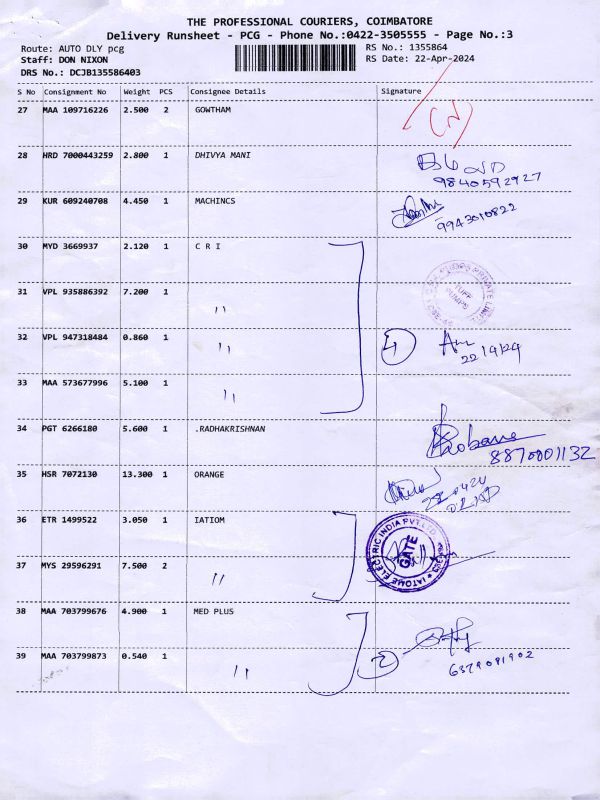 THE PROFESSIONAL COURIERS, COIMBATORE
Delivery Runsheet - PCG - Phone No.:0422-3505555 - Page No.:3
Route: AUTO DLY pcg
RS No.: 1355864
Staff: DON NIXON
RS Date: 22-Apr-2024
DRS No.: DCJB135586403
S No Consignment No Weight PCS Consignee Details Signature
27 MAA 109716226 2.500 2 GOWTHAM
28 HRD 7000443259 2.800 1 DHIVYA MANI
9840592927
29 KUR 609240708 4.450 1 MACHINCS
9943010822
30 MYD 3669937 2.120 1 C R I
31 VPL 935886392 7.200 1 "
32 VPL 947318484 0.860 1 " 4
22/4/24
33 MAA 573677996 5.100 1 "
34 PGT 6266180 5.600 1 .RADHAKRISHNAN
8870001132
35 HSR 7072130 13.300 1 ORANGE
36 ETR 1499522 3.050 1 IATIOM
IATOME ELECTRIC INDIA PVT LTD
GATE
37 MYS 29596291 7.500 2 "
38 MAA 703799676 4.900 1 MED PLUS
39 MAA 703799873 0.540 1 " 2
6379081902